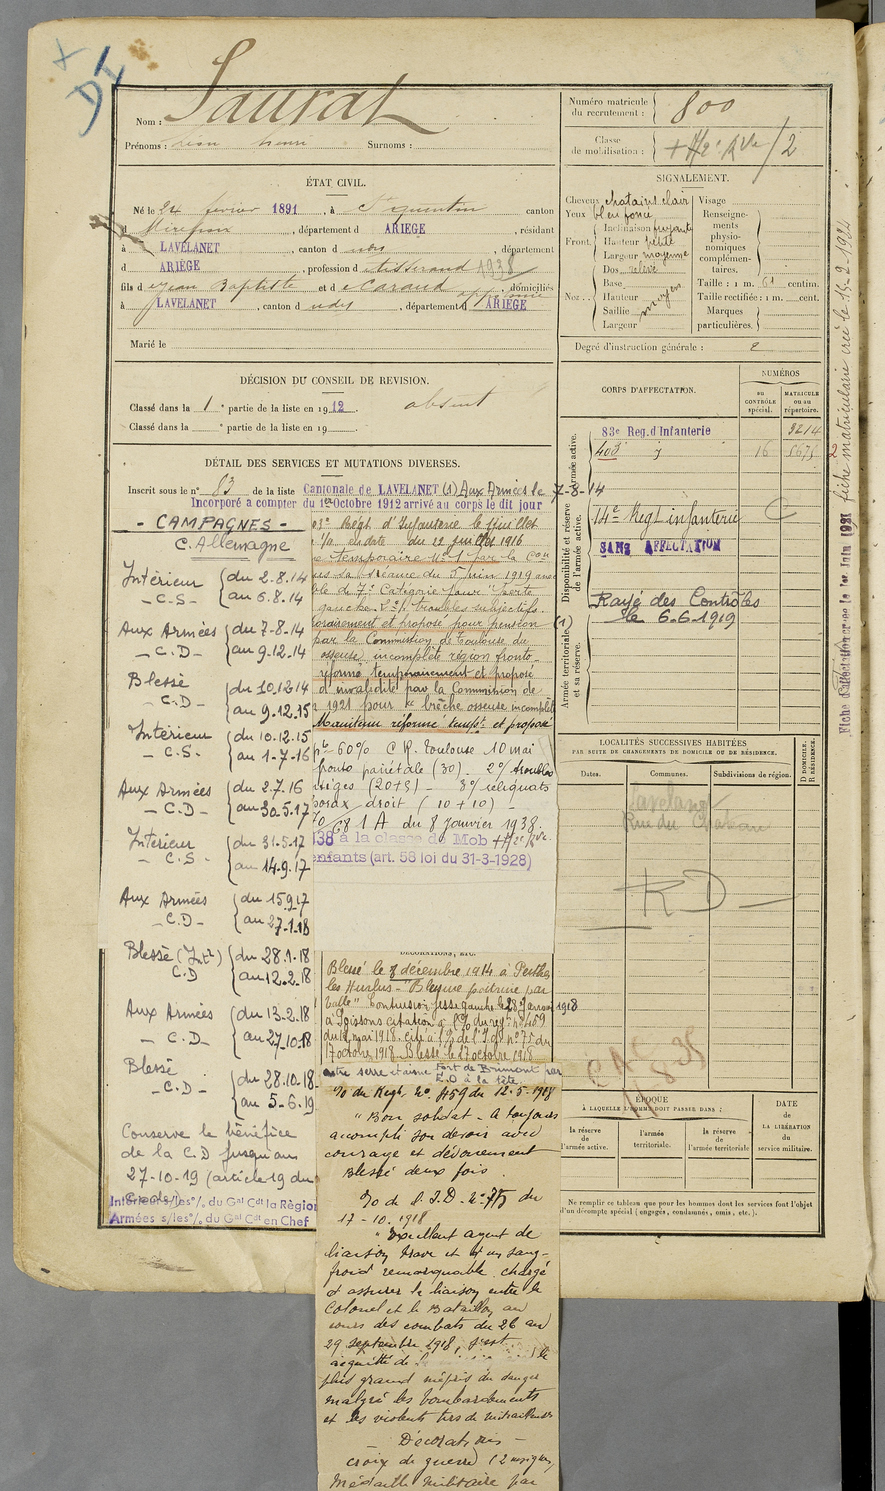 Nom : Saurat
Prénoms : Surnoms :
ÉTAT CIVIL.
Né le 24 février 1891, à St Quentin canton
d Mirepoix, département d ARIEGE, résidant
à LAVELANET, canton d udes, département
d ARIÈGE, profession d tisserand 1938
fils d Jean Baptiste et d Caraud, domiciliés
à LAVELANET, canton d udes, département d ARIEGE
Marié le
DÉCISION DU CONSEIL DE REVISION.
Classé dans la 1e partie de la liste en 1912. absent
Classé dans la e partie de la liste en 19
DÉTAIL DES SERVICES ET MUTATIONS DIVERSES.
Inscrit sous le n° 83 de la liste Cantonale de LAVELANET (1) Aux Armées le 7-8-14
Incorporé à compter du 1er Octobre 1912 arrivé au corps le dit jour
- CAMPAGNES -
C. Allemagne
Intérieur du 2.8.14
- C.S - au 6.8.14
Aux Armées du 7-8-14
- C.D - au 9.12.14
Blessé du 10.12.14
- C.D - au 9.12.15
Intérieur du 10.12.15
- C.S. au 1-7-16
Aux Armées du 2.7.16
- C.D - au 30.5.17
Intérieur du 31.5.17
- C.S - au 14.9.17
Aux Armées du 15.9.17
- C.D - au 27.1.18
Blessé (Int) du 28.1.18
C.D au 12.2.18
Aux Armées du 13.2.18
- C.D - au 27.10.18
Blessé du 28.10.18
- C.D - au 5-6.19
Conserve le bénéfice
de la C D jusqu'au
27-10-19 (article 19 du
Code)
Intérieur s/les °/. du Gal Cdt la Région
Armées s/les °/. du Gal Cdt en Chef
Régt d'Infanterie le juillet
en date du 12 juillet 1916
temporaire N° 1 par la Con
sa séance du 5 juin 1919 avec
de 7e Catégorie pour perte
gauche. 2° troubles subjectifs.
et proposé pour pension (1)
par la Commission de Toulouse du
osseuse incomplète région fronto
réformé temporairement et proposé
d'invalidité par la Commission de
1921 pour brèche osseuse incomplète
Maintenu réformé tempt et proposé
60% C R. Toulouse 10 mai
fronto pariétale (30) - 2° troubles
(20+5) - 3° reliquats
thorax droit (10+10) -
68 1 A du 8 Janvier 1938.
38 à la classe de Mob
enfants (art. 58 loi du 31-3-1928)
DÉCORATIONS, ETC.
Blessé le 8 décembre 1914 à Perthes
les Hurlus - poitrine par
balle" Contusion fesse gauche le 28 Janvier 1918
à Soissons citation à l'O. du régt n° 459
du 12 mai 1918. cité à l'O. de l'I.D. n° 75 du
17 octobre 1918 - Blessé le 27 octobre 1918
entre serre et aisne Fort de Brimont par
E.O à la tête
O du Régt N° 459 du 12-5-1918
"Bon soldat - A toujours
accompli son devoir avec
courage et dévouement
Blessé deux fois.
O de l'I.D - N° 75 du
17-10-1918
"Excellent agent de
liaison brave et d'un sang-
froid remarquable, chargé
d'assurer la liaison entre le
Colonel et le Bataillon au
cours des combats du 26 au
29 Septembre 1918, s'est
acquitté de le
plus grand mépris du danger
malgré les bombardements
et les violents tirs de mitrailleuses
- Décorations -
croix de guerre (2 insignes)
Médaille militaire par
Numéro matricule
du recrutement : 800
Classe
de mobilisation : / 2
SIGNALEMENT.
Cheveux chatains clair
Yeux bleu foncé
Front. Inclinaison fuyante
Hauteur petite
Largeur moyenne
Nez. Dos relevé
Base
Hauteur moyen
Saillie
Largeur
Visage
Renseigne-
ments
physio-
nomiques
complémen-
taires.
Taille : 1 m. 61 centim.
Taille rectifiée : 1 m. cent.
Marques
particulières.
Degré d'instruction générale : 2
CORPS D'AFFECTATION.
NUMÉROS
au CONTRÔLE spécial.
MATRICULE ou au répertoire.
Armée active.
83e Reg. d'Infanterie 3214
408e 16 5675
Disponibilité et réserve de l'armée active.
14e Regt infanterie C
SANS AFFECTATION
Armée territoriale et sa réserve.
Rayé des Contrôles
le 6-6-1919
LOCALITÉS SUCCESSIVES HABITÉES
PAR SUITE DE CHANGEMENTS DE DOMICILE OU DE RÉSIDENCE.
D. DOMICILE. R. RÉSIDENCE.
Dates. Communes. Subdivisions de région.
Lavelanet
Rue du Chateau
R D
ÉPOQUE
À LAQUELLE L'HOMME DOIT PASSER DANS :
la réserve de l'armée active.
l'armée territoriale.
la réserve de l'armée territoriale
DATE DE LA LIBÉRATION du service militaire.
Ne remplir ce tableau que pour les hommes dont les services font l'objet
d'un décompte spécial (engagés, condamnés, omis, etc.).
fiche matriculaire créé le 13-2-1922